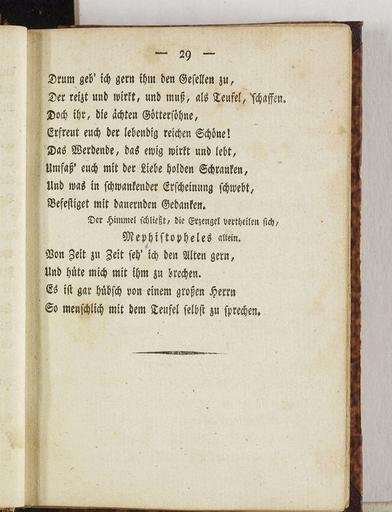 — 29 —
Drum geb' ich gern ihm den Gesellen zu,
Der reizt und wirkt, und muß, als Teufel, schaffen.
Doch ihr, die ächten Göttersöhne,
Erfreut euch der lebendig reichen Schöne!
Das Werdende, das ewig wirkt und lebt,
Umfaß' euch mit der Liebe holden Schranken,
Und was in schwankender Erscheinung schwebt,
Befestiget mit dauernden Gedanken.
Der Himmel schließt, die Erzengel vertheilen sich,
Mephistopheles allein.
Von Zeit zu Zeit seh' ich den Alten gern,
Und hüte mich mit ihm zu brechen.
Es ist gar hübsch von einem großen Herrn
So menschlich mit dem Teufel selbst zu sprechen.